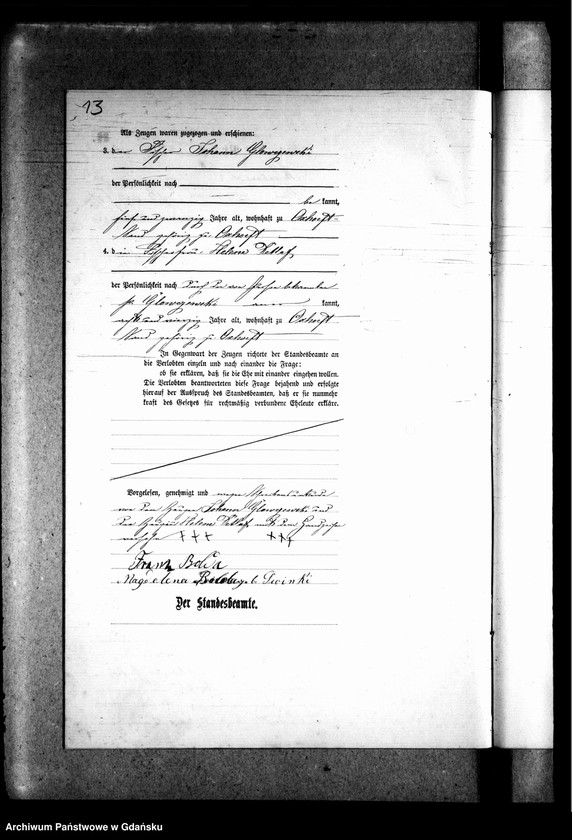 13
Als Zeugen waren zugezogen und erschienen:
3. der Fischer Johann Glowczewski
der Persönlichkeit nach
be kannt,
fünf und zwanzig Jahre alt, wohnhaft zu Oxhöft
gehörig zu Oxhöft
4. die Fischerfrau Helene Detlaf
der Persönlichkeit nach durch den
p. Glowczewski kannt,
acht und vierzig Jahre alt, wohnhaft zu Oxhöft
gehörig zu Oxhöft
In Gegenwart der Zeugen richtete der Standesbeamte an
die Verlobten einzeln und nach einander die Frage:
ob sie erklären, daß sie die Ehe mit einander eingehen wollen.
Die Verlobten beantworteten diese Frage bejahend und erfolgte
hierauf der Ausspruch des Standesbeamten, daß er sie nunmehr
kraft des Gesetzes für rechtmäßig verbundene Eheleute erkläre.
Vorgelesen, genehmigt und wegen Schreibensunkunde
von dem Zeugen Johann Glowczewski und
der Zeugin Helene Detlaf mit dem Handzeichen
versehen +++ +++
Franz
Magdalena
Der Standesbeamte.
Archiwum Państwowe w Gdańsku